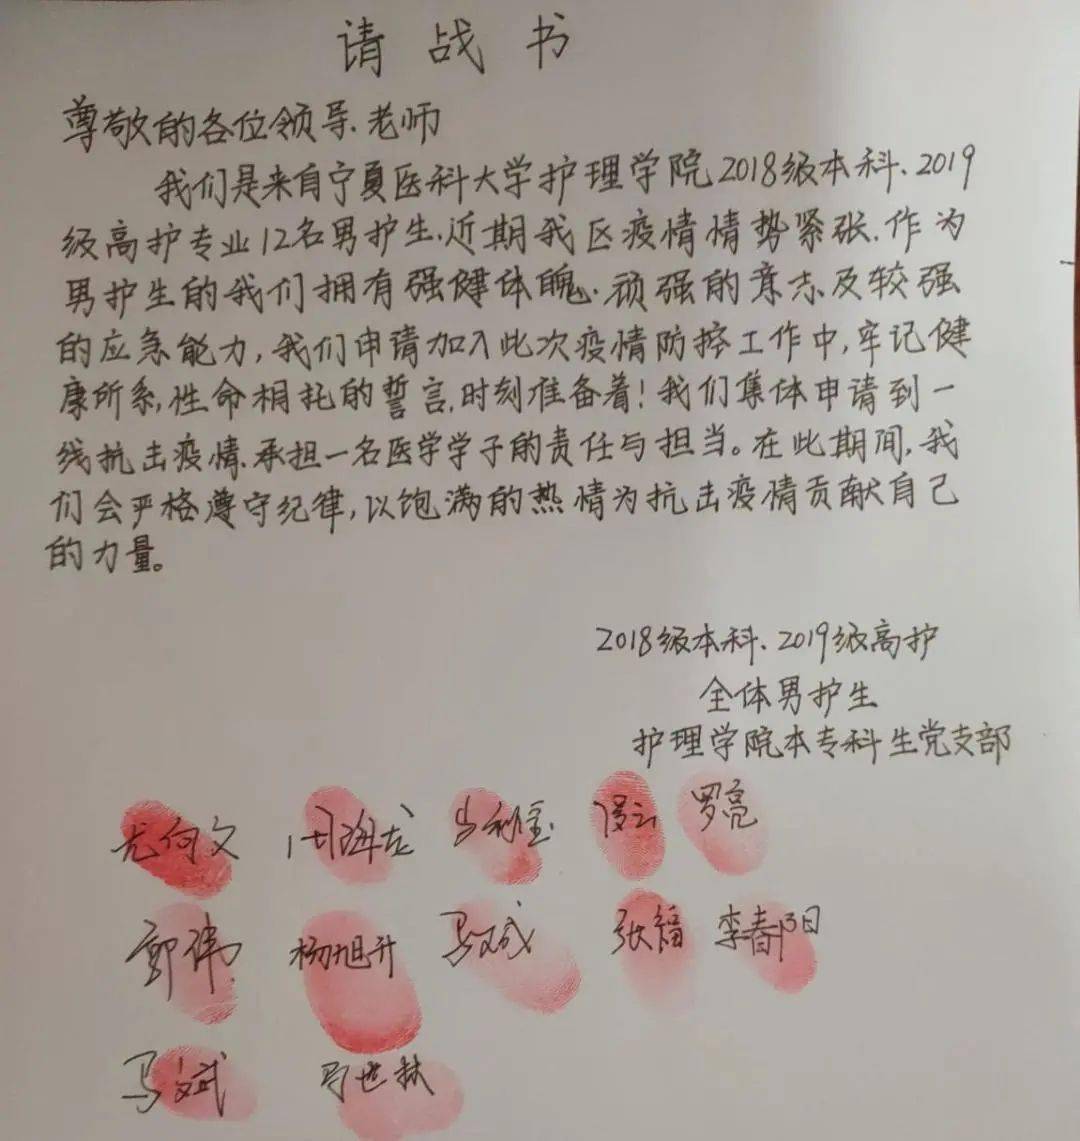 请战书
尊敬的各位领导、老师
我们是来自宁夏医科大学护理学院2018级本科、2019
级高护专业12名男护生.近期我区疫情情势紧张.作为
男护生的我们拥有强健体魄.顽强的意志及较强
的应急能力,我们申请加入此次疫情防控工作中,牢记健
康所系,性命相托的誓言,时刻准备着!我们集体申请到一
线抗击疫情.承担一名医学学子的责任与担当。在此期间,我
们会严格遵守纪律,以饱满的热情为抗击疫情贡献自己
的力量。
2018级本科、2019级高护
全体男护生
护理学院本专科生党支部
尤向文 罗亮
郭伟 杨旭升 马文成 张福 李春阳
马文斌 马世林